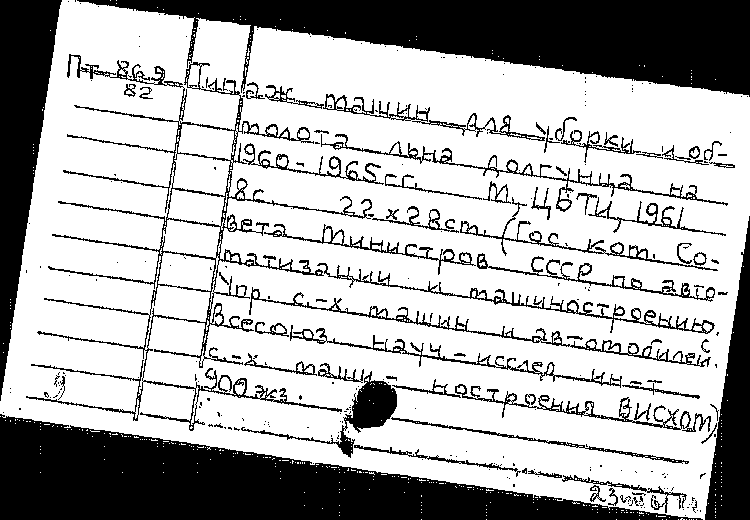 Пт 869 Типаж машин для уборки и об-
82
молота льна долгунца на
1960-1965 гг. М, ЦБТИ, 1961
8с. 22х28ст. (Гос. ком. Со-
вета Министров СССР по авто-
матизации и машиностроению.
Упр. с.-х. машин и автомобилей.
Всесоюз. науч-исслед ин-т с
с.-х. маши- ностроения ВИСХОМ)
900 экз.
9